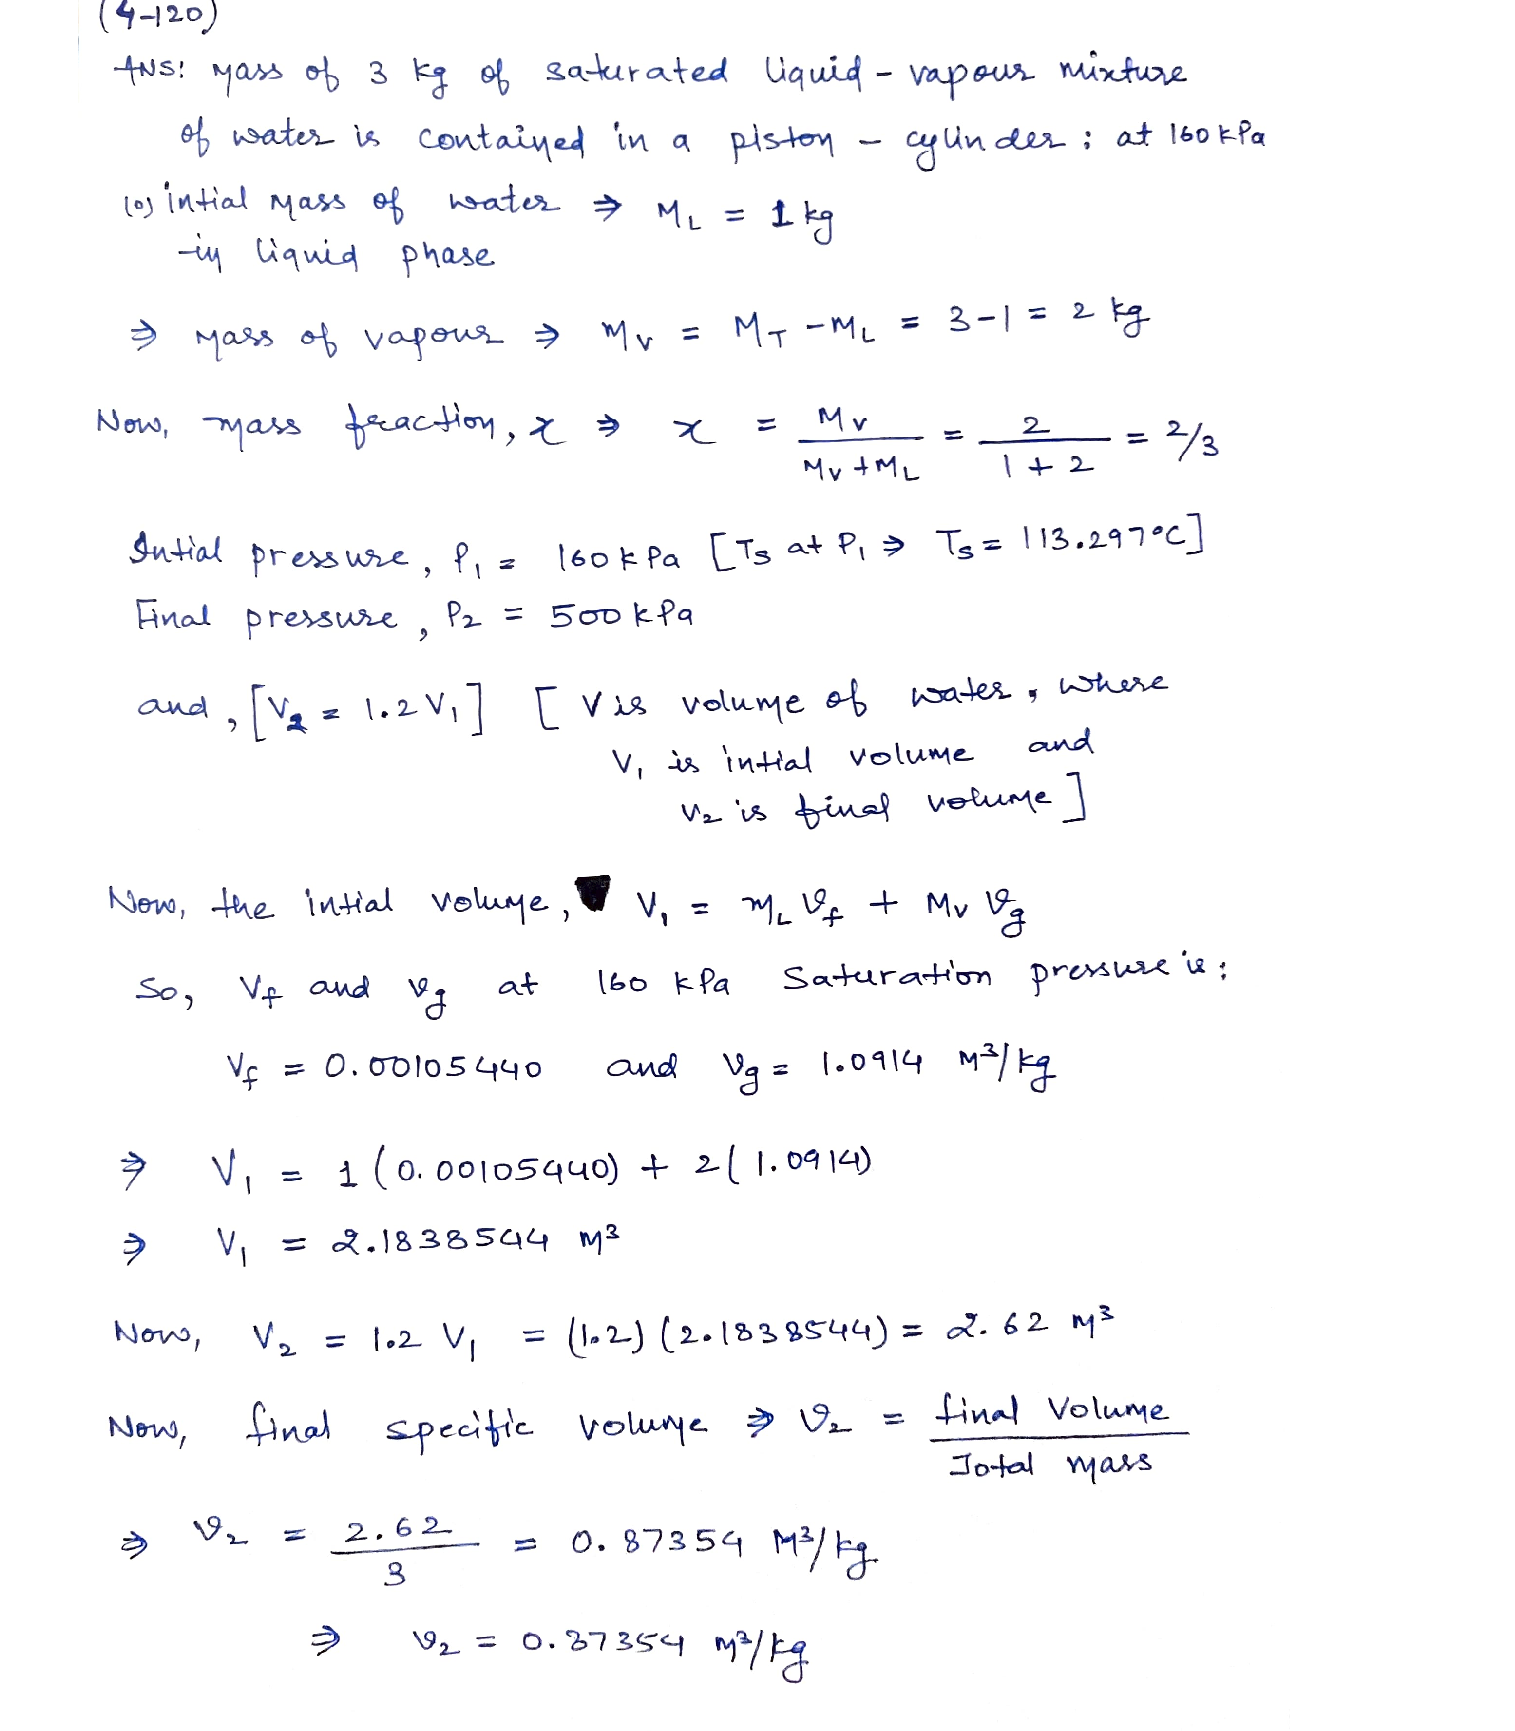 (4-120)
ANS: Mass of 3 kg of saturated liquid - vapour mixture
of water is contained in a piston - cylinder ; at 160 kPa
(a) intial Mass of water ⇒ M_L = 1 kg
in liquid phase
⇒ Mass of vapour ⇒ M_v = M_T - M_L = 3-1 = 2 kg
Now, mass fraction, x ⇒ x = M_v / (M_v + M_L) = 2 / (1+2) = 2/3
Intial pressure, P₁ = 160 kPa [Ts at P₁ ⇒ Ts = 113.297°C]
Final pressure, P₂ = 500 kPa
and, [V₂ = 1.2 V₁] [ V is volume of water, where
V₁ is intial volume and
V₂ is final volume ]
Now, the intial volume, V₁ = m_L v_f + M_v v_g
So, V_f and v_g at 160 kPa Saturation pressure is :
V_f = 0.00105440 and v_g = 1.0914 m³/kg
⇒ V₁ = 1 (0.00105440) + 2( 1.0914)
⇒ V₁ = 2.1838544 m³
Now, V₂ = 1.2 V₁ = (1.2) (2.1838544) = 2.62 m³
Now, final specific volume ⇒ v₂ = final Volume / Total mass
⇒ v₂ = 2.62 / 3 = 0.87354 M³/kg
⇒ v₂ = 0.87354 m³/kg